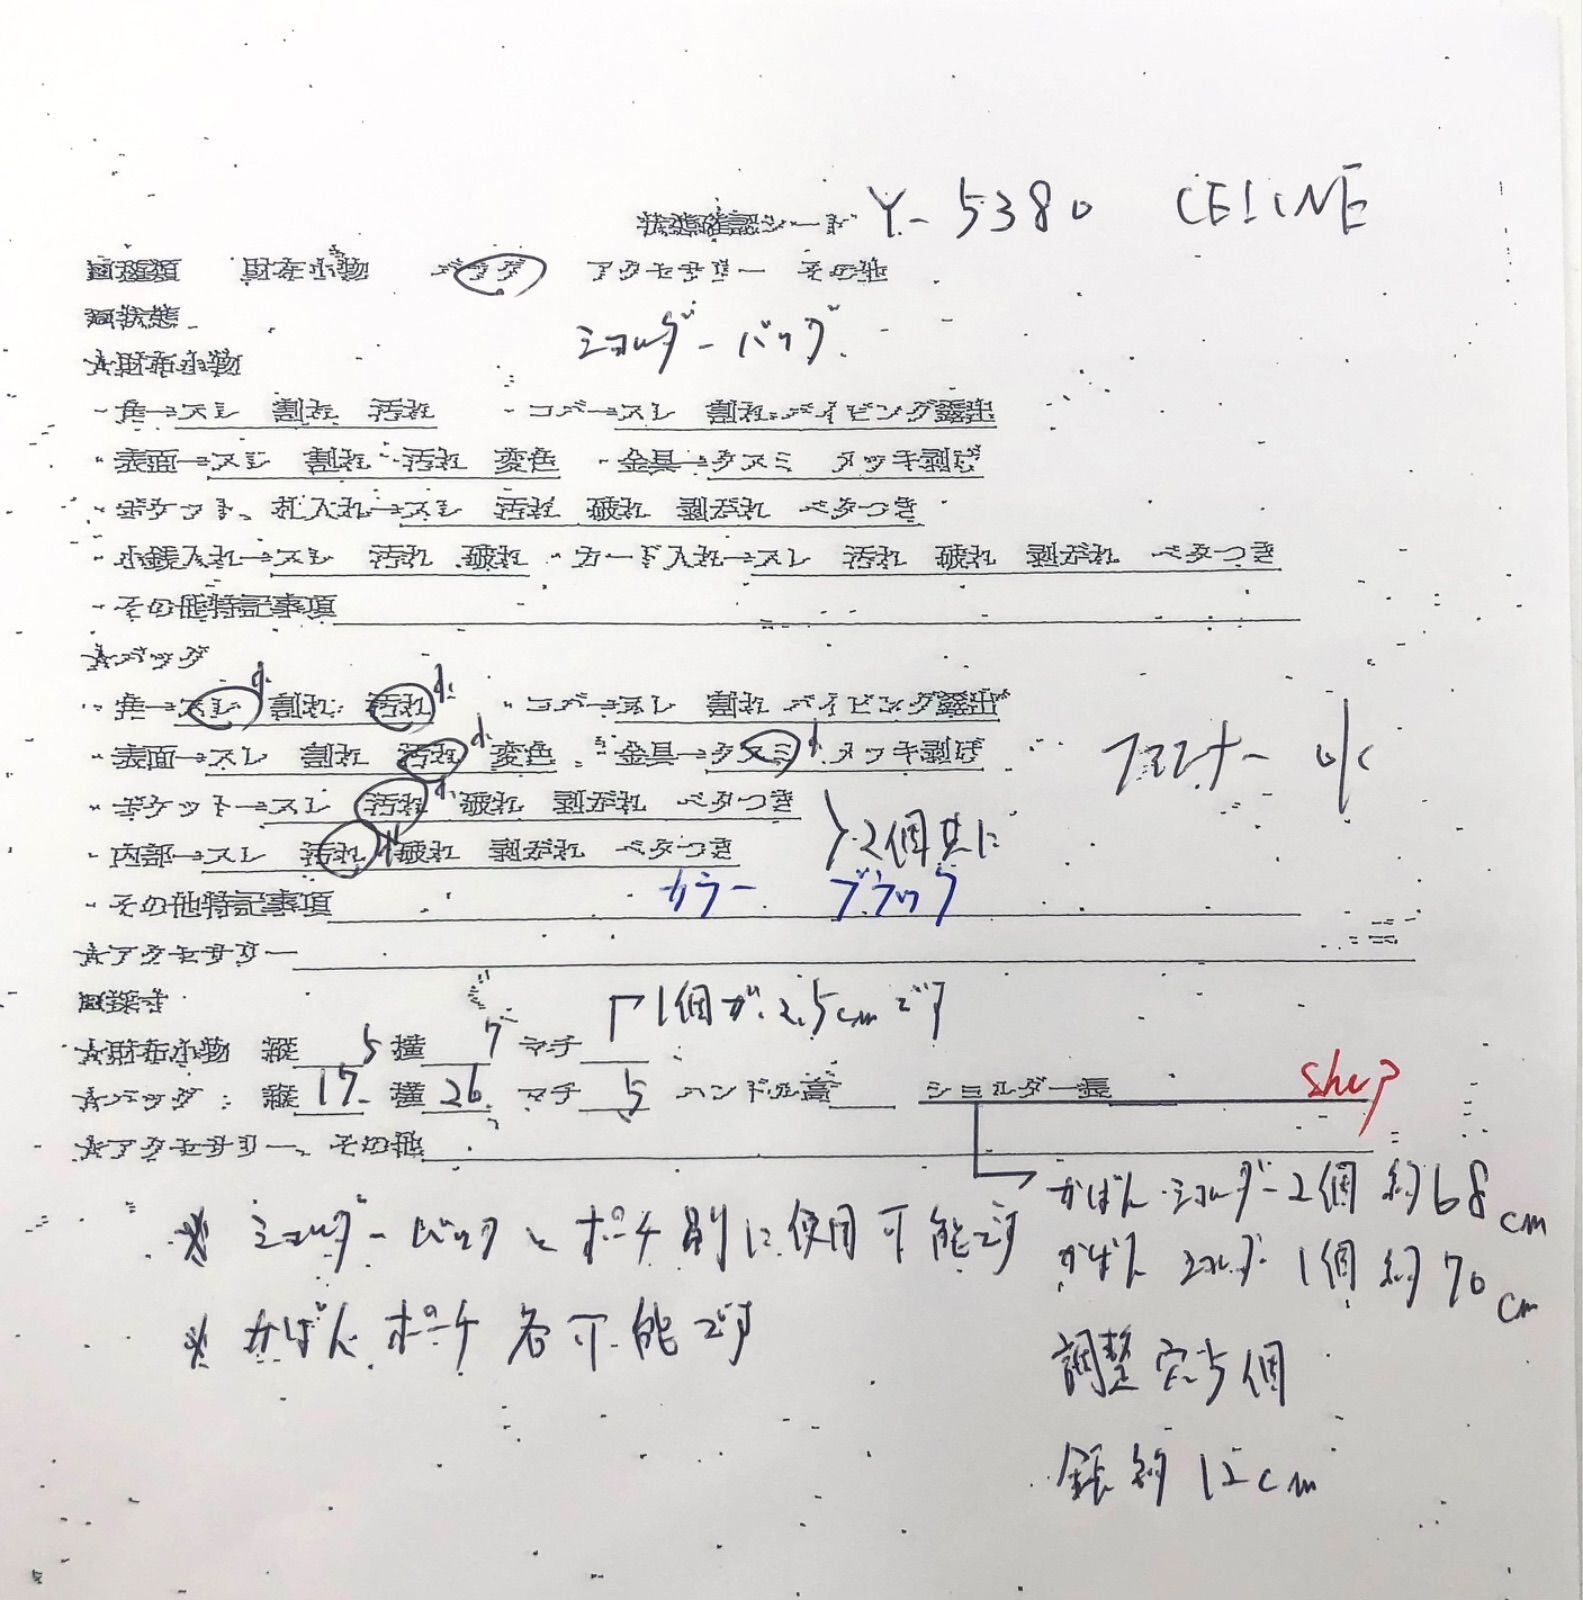 状態確認シート Y-5380 CELINE
■種類 財布小物 バッグ アクセサリー その他
■状態
ショルダーバッグ
★財布小物
・角→スレ 割れ 汚れ ・コバ→スレ 割れ パイピング露出
・表面→スレ 割れ 汚れ 変色 ・金具→クスミ メッキ剥げ
・ポケット、札入れ→スレ 汚れ 破れ 剥がれ ベタつき
・小銭入れ→スレ 汚れ 破れ ・カード入れ→スレ 汚れ 破れ 剥がれ ベタつき
・その他特記事項
★バッグ
・角→スレ 割れ 汚れ ・コバ→スレ 割れ パイピング露出
・表面→スレ 割れ 汚れ 変色 ・金具→クスミ メッキ剥げ
ファスナー 小
・ポケット→スレ 汚れ 破れ 剥がれ ベタつき
2個共に
・内部→スレ 汚れ 破れ 剥がれ ベタつき
・その他特記事項 カラー ブラック
★アクセサリー
■採寸
1個が2.5cmです
★財布小物 縦 5 横 7 マチ
★バッグ：縦 17 横 26 マチ 5 ハンドル高 ショルダー長
★アクセサリー、その他
かばん ショルダー2個 約68cm
※ ショルダーバッグとポーチ別に使用可能です
かばん ショルダー 1個 約70cm
※ かばん ポーチ 各可能です
調整穴5個
約12cm